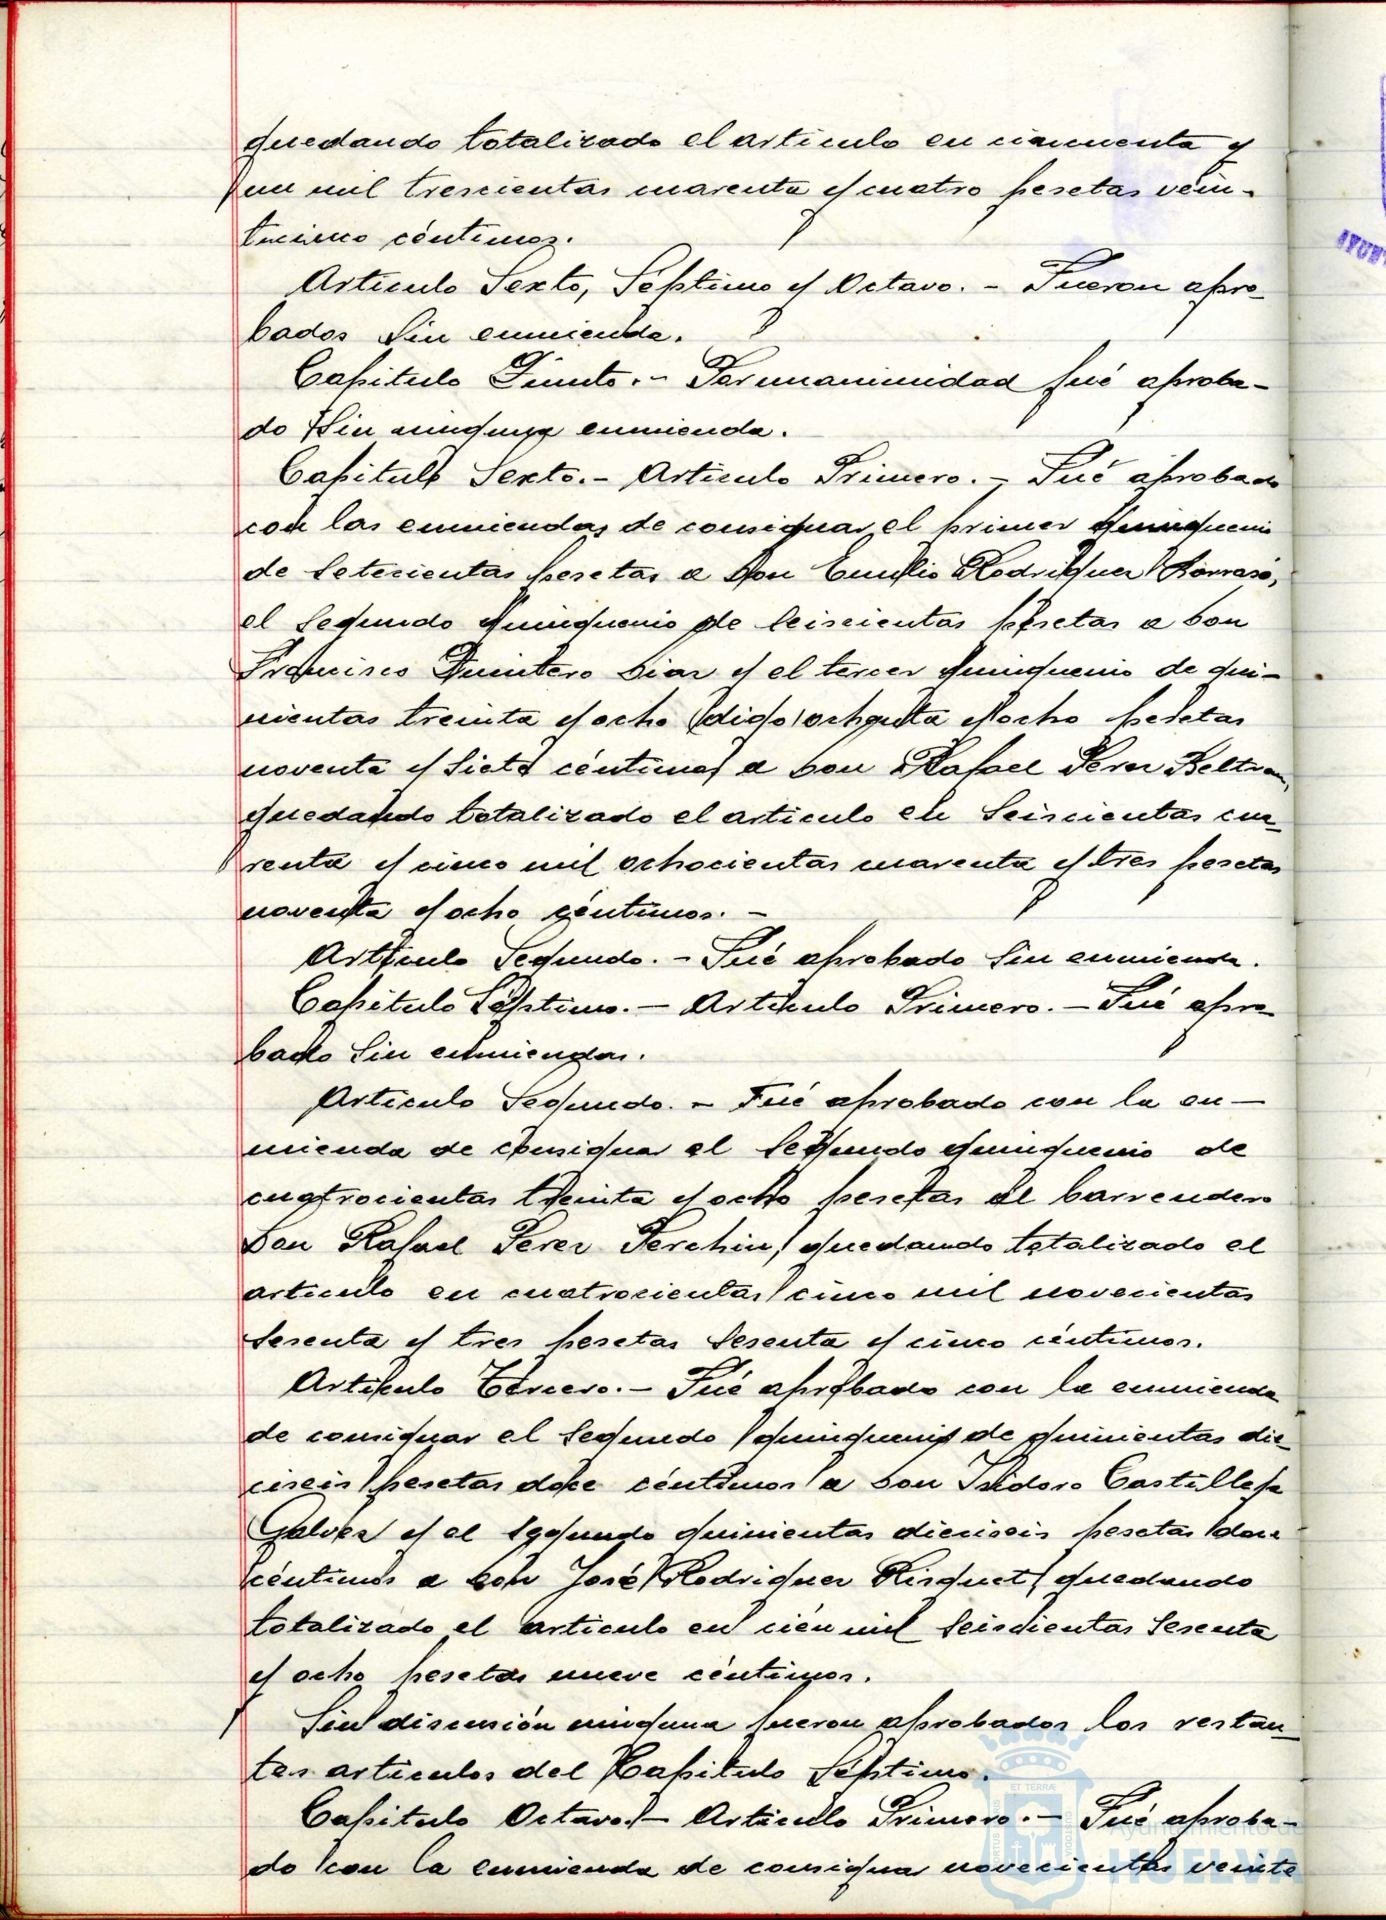 quedando totalizado el artículo en cincuenta y
un mil trescientas cuarenta y cuatro pesetas vein-
ticinco céntimos.
Artículo Sexto, Séptimo y Octavo. - Fueron apro-
bados sin enmienda.
Capítulo Quinto. - Por unanimidad fué aproba-
do sin ninguna enmienda.
Capítulo Sexto. - Artículo Primero. - Fué aprobado
con las enmiendas de consignar el primer quinquenio
de setecientas pesetas a Don Emilio Rodriguez
el segundo quinquenio de seiscientas pesetas a Don
Francisco Quintero Diaz y el tercer quinquenio de qui-
nientas treinta y ocho (digo) ochenta y ocho pesetas
noventa y siete céntimos a Don Rafael Perez Beltran,
quedando totalizado el artículo en seiscientas cua-
renta y cinco mil ochocientas cuarenta y tres pesetas
noventa y ocho céntimos. -
Artículo Segundo. - Fué aprobado sin enmienda.
Capítulo Séptimo. - Artículo Primero. - Fué apro-
bado sin enmiendas.
Artículo Segundo. - Fué aprobado con la en-
mienda de consignar el segundo quinquenio de
cuatrocientas treinta y ocho pesetas al barrendero
Don Rafael Perez Perchin, quedando totalizado el
artículo en cuatrocientas cinco mil novecientas
sesenta y tres pesetas sesenta y cinco céntimos.
Artículo Tercero. - Fué aprobado con la enmienda
de consignar el segundo quinquenio de quinientas die-
ciseis pesetas doce céntimos a Don Isidoro Castilleja
Galvez y el segundo quinientas dieciseis pesetas doce
céntimos a Don José Rodriguez Risquet, quedando
totalizado el artículo en cién mil seiscientas sesenta
y ocho pesetas nueve céntimos.
Sin discusión ninguna fueron aprobados los restan-
tes artículos del Capítulo Séptimo.
Capítulo Octavo. - Artículo Primero. - Fué aproba-
do con la enmienda de consignar novecientas veinte
ET TERRÆ
Ayuntamiento de
HUELVA